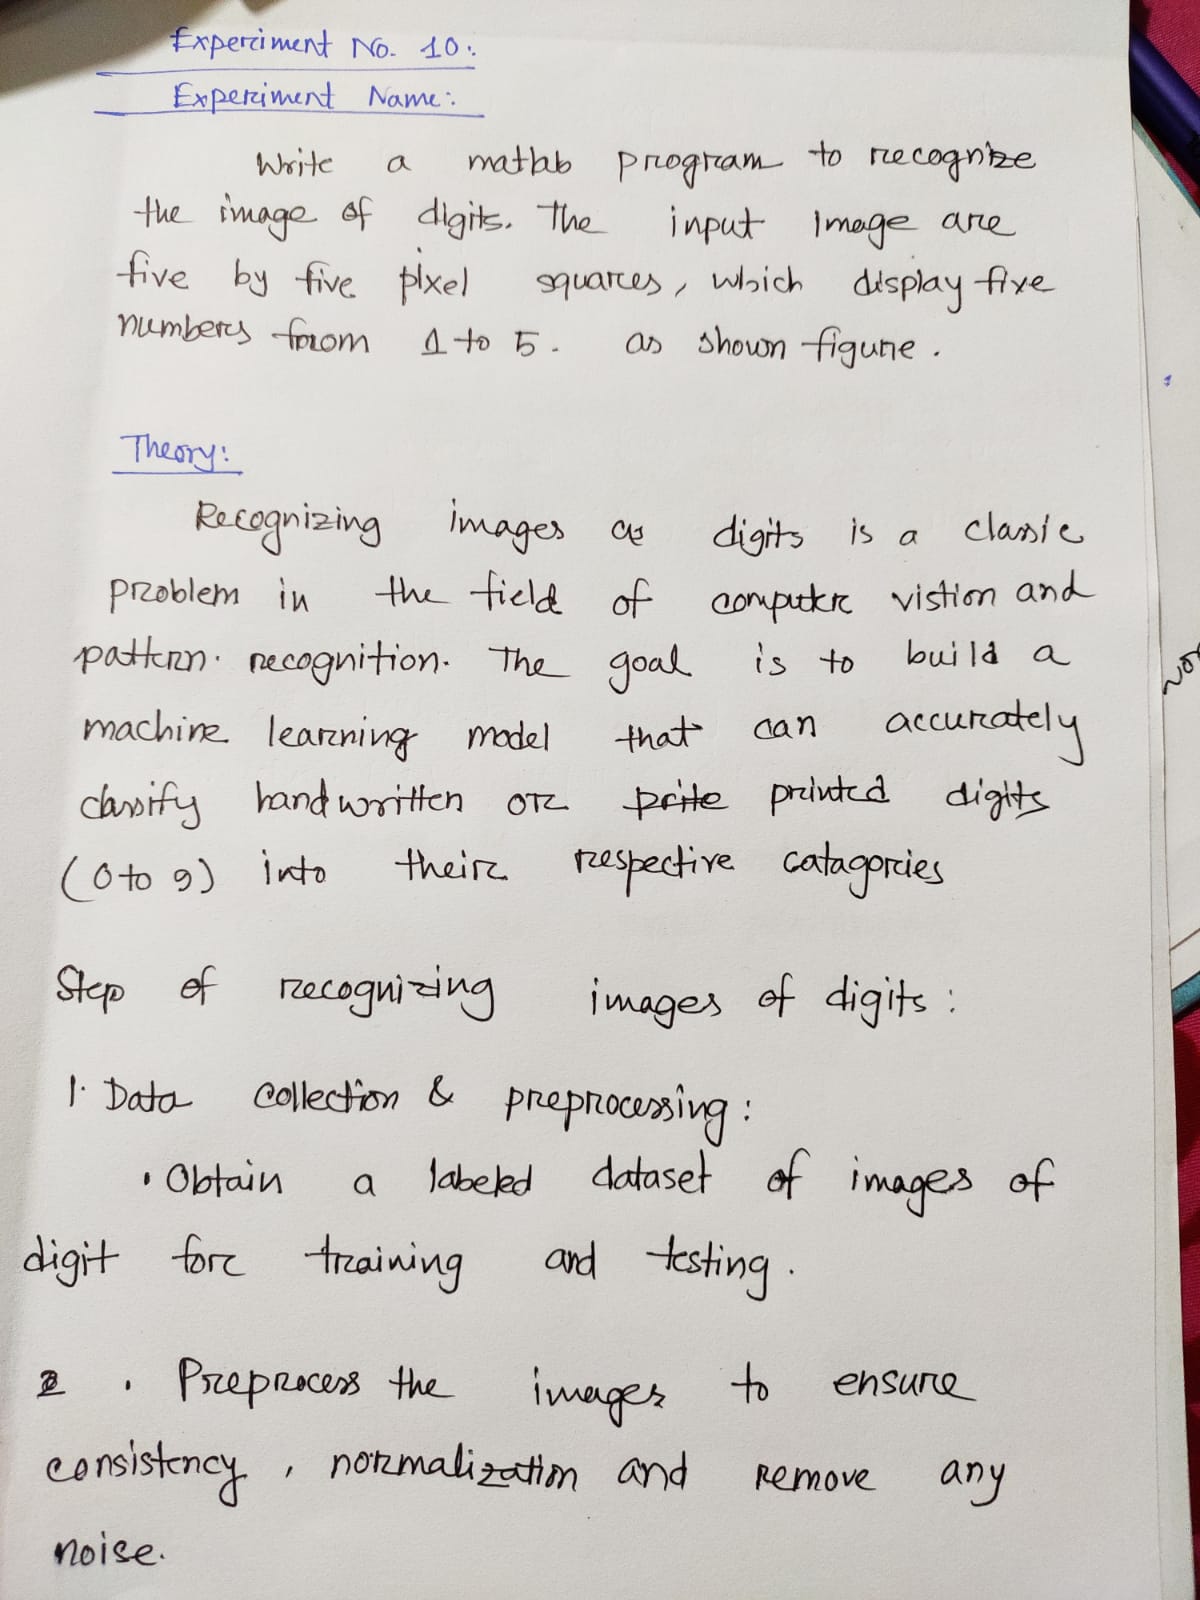 Experiment No. 10:
Experiment Name:
Write a matlab program to recognize
the image of digits. The input Image are
five by five pixel squares, which display five
numbers from 1 to 5. as shown figure.
Theory:
Recognizing images as digits is a classic
problem in the field of computer vistion and
pattern. recognition. The goal is to build a
machine learning model that can accurately
classify handwritten or prite printed digits
(0 to 9) into their respective catagories
Step of recognizing images of digits:
1. Data collection & preprocessing:
• Obtain a labeled dataset of images of
digit for training and testing.
2 • Preprocess the images to ensure
consistency, normalization and remove any
noise.